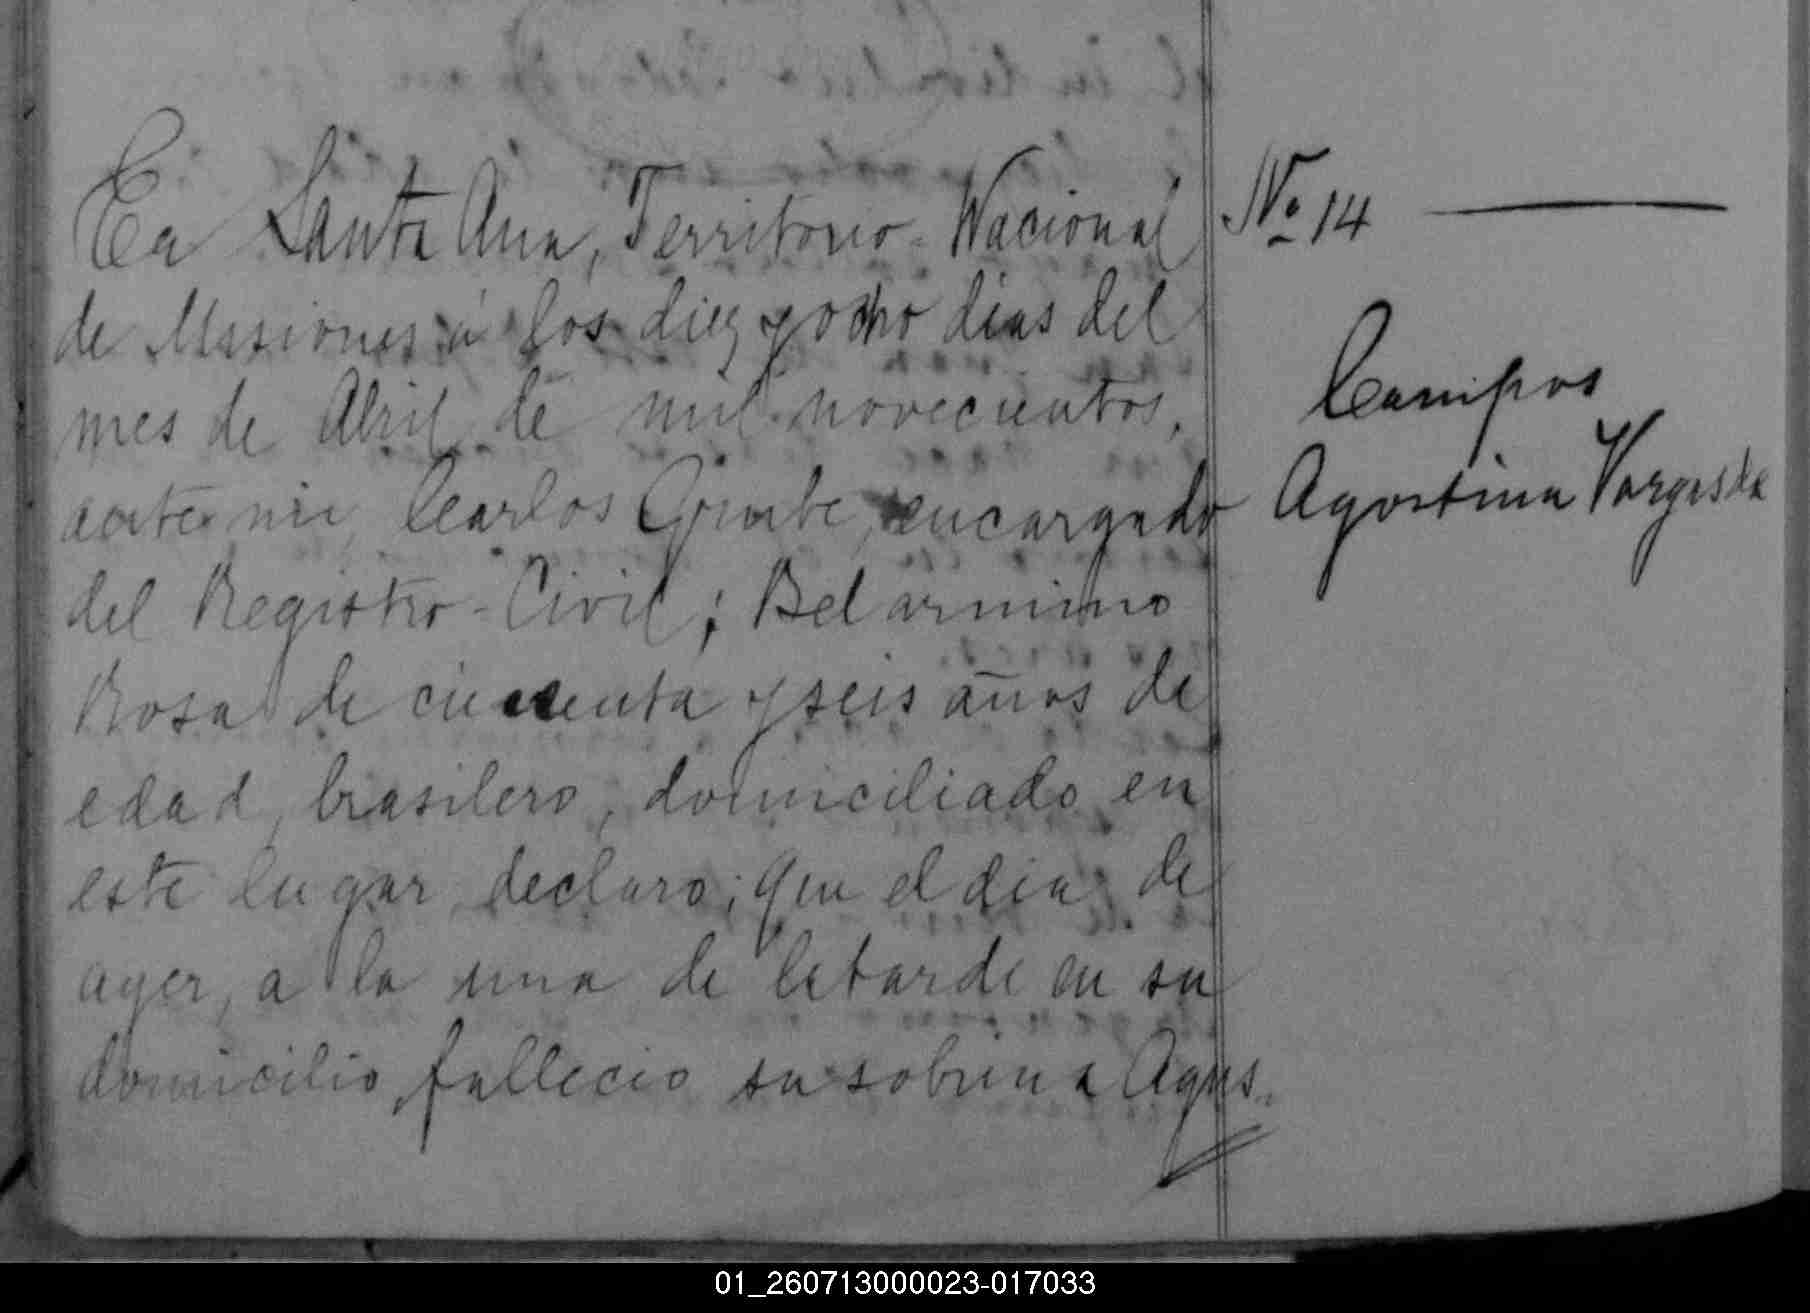 En Santa Ana, Territorio-Nacional
de Misiones á los diez y ocho dias del
mes de Abril de mil novecientos,
ante mi, Carlos encargado
del Registro-Civil; Belarmino
Rosa de cincuenta y seis años de
edad, brasilero, domiciliado en
este lugar, declaro; que el dia de
ayer, a la una de la tarde en su
domicilio, fallecio su sobrina Agus-
Nº 14
Campos
Agostina Vargas de
01_260713000023-017033